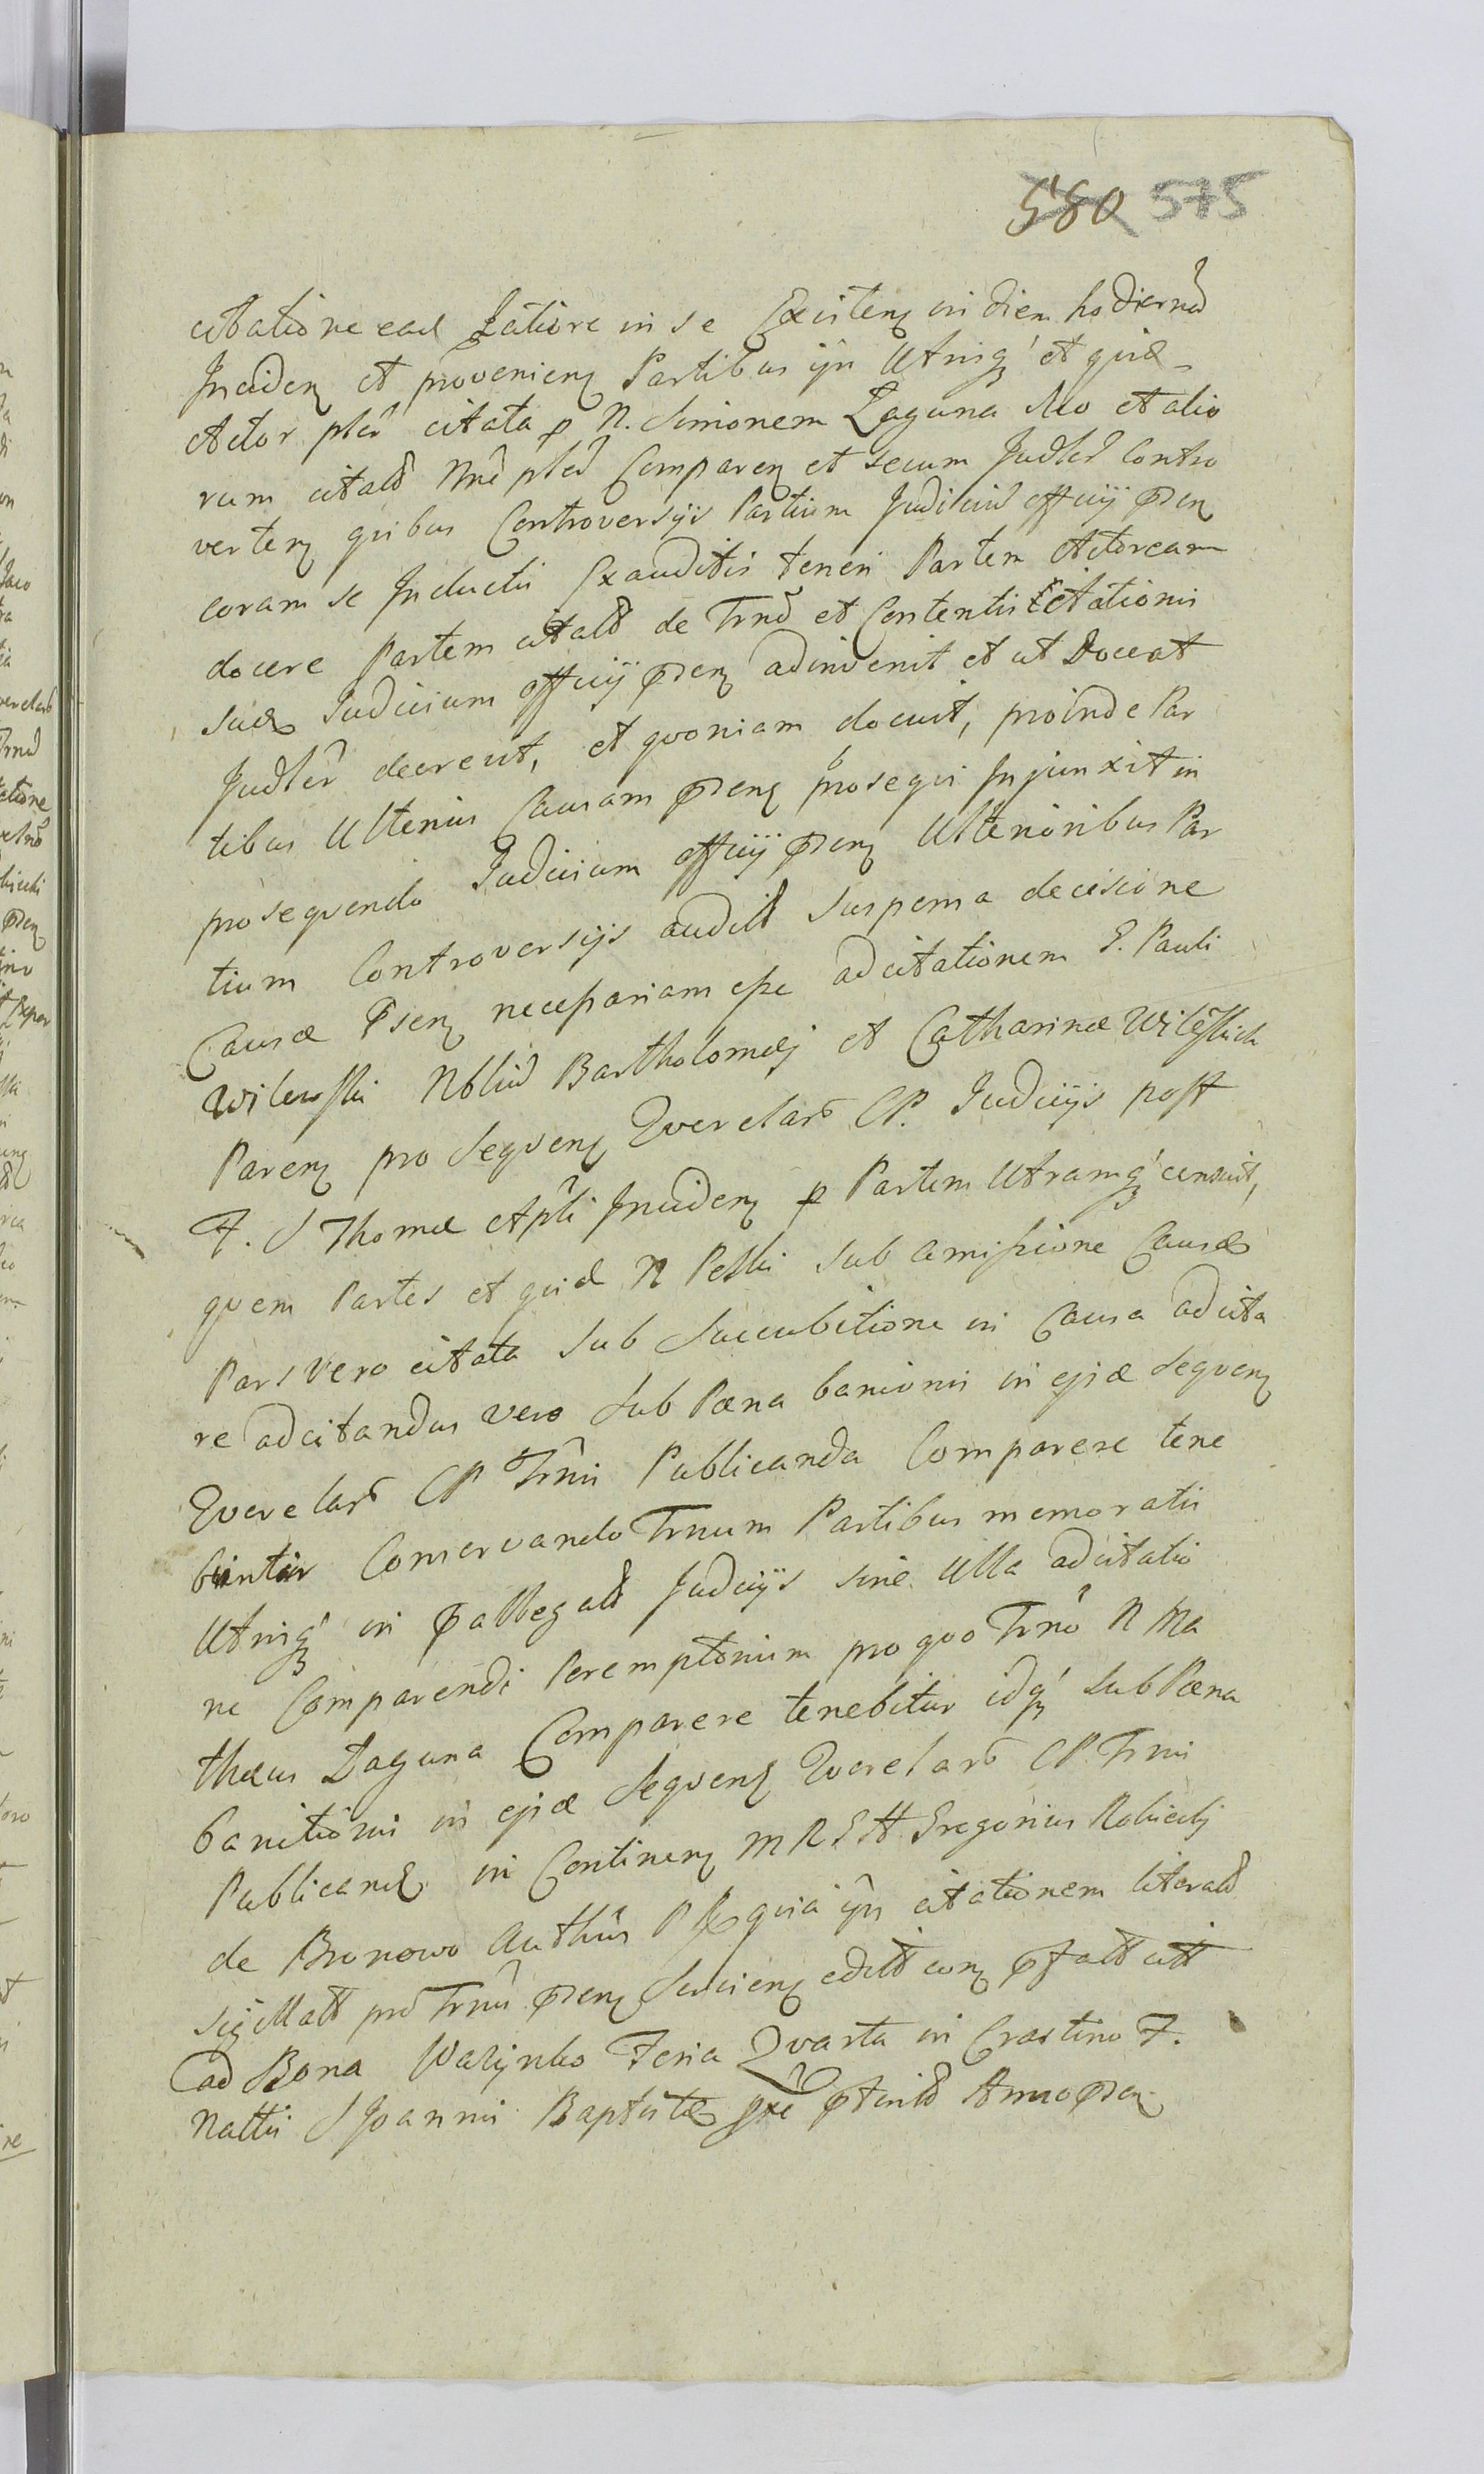 580 575
citatione ead Latiore in se Existen in diem hodiernã
Inciden et provenien Partibus ijs Utrisq et quid
Actor pter citata p N. Simonem Laguna suo et alio
rum citatt Nne pted Comparen et secum Judter Contro
verten quibus Controversijs Partium Judicium officij psen
coram se Inductis Exauditis teneri Partem Actoream
docere Partem citatt de Trno et Contentis Citationis
suæ Judicium officij psen adinvenit et ut Doceat
Judter decrevit, et quoniam docuit, proinde Par
tibus Ulterius Causam psen prosequi Injunxit in
prosequendo Judicium officij psen Ulterioribus Par
tium Controversijs auditt suspensa decisione
Causæ Psen necessariam esse adcitationem G. Pauli
Wilewski Nbliu Bartholomæj et Catharinæ Wilewskich
Paren pro Sequen Querelarũ CP. Judicijs post
F. S Thomæ Apli Inciden p Partem Utramq censuit,
quem Partes et quid N Peski sub amissione Causæ
Pars vero citata sub Succubitione in Causa adcita
re adcitandus vero sub Pæna banionis in ejsæ Sequen
Querelarũ CP Trnis Publicanda Comparere tene
buntur Conservando Trnum Partibus memoratis
Utrisq in pallegatt Judicijs sine Ulla adcitatio
ne Comparendi Peremptorium pro quo Trno N Ma
thæus Laguna Comparere tenebitur idq sub Pæna
banitionis in ejsæ Sequen Querelarũ CP. Trnis
Publicand in Continen M R G H Gregorius Rakiecki
de Bronowo Authus P R quia ijs citationem literatt
sigillatt pro Trno psen Servien editt con pfatt citt
ad Bona Waszynko Feria Quarta in Crastino F.
Nattis S Joannis Baptistæ pxe pteritt Anno psen